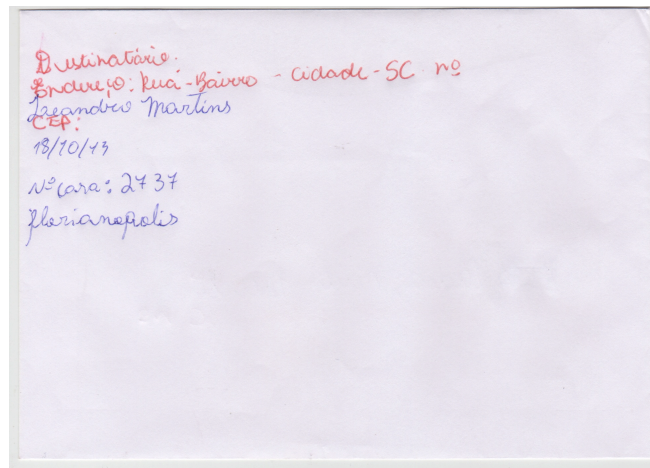 Destinatário.
Endereço: Rua - Bairro - cidade - SC nº
Leandro Martins
CEP:
18/10/13
Nº casa: 2737
florianopolis